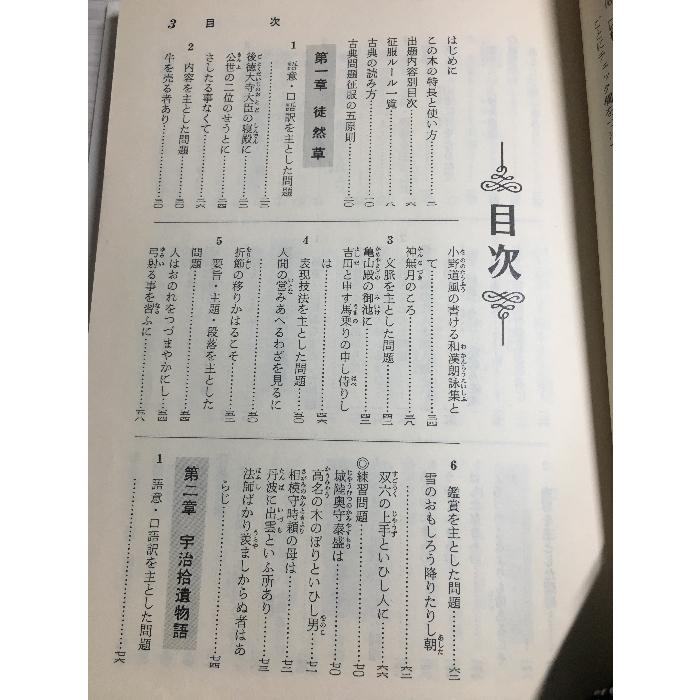 3 目次
目次
はじめに
この本の特長と使い方……二
出題内容別目次……六
征服ルール一覧……八
古典の読み方……一〇
古典問題征服の五原則……二〇
第一章 徒然草
1 語意・口語訳を主とした問題
後徳大寺大臣の寝殿に
公世の二位のせうとに……二四
さしたる事なくて……二六
2 内容を主とした問題……三〇
牛を売る者あり……三〇
小野道風の書ける和漢朗詠集と
て……三四
神無月のころ……三八
3 文脈を主とした問題……四二
亀山殿の御池に……四二
吉田と申す馬乗りの申し侍りし
は……四六
4 表現技法を主とした問題……五〇
人間の営みあへるわざを見るに
……五〇
折節の移りかはるこそ……五二
5 要旨・主題・段落を主とした
問題……五四
人はおのれをつづまやかにし……五四
弓射る事を習ふに……五八
6 鑑賞を主とした問題……六二
雪のおもしろう降りたりし朝
……六二
双六の上手といひし人に
◎練習問題……七〇
城陸奥守泰盛は……七〇
高名の木のぼりといひし男……七一
相模守時頼の母は……七二
丹波に出雲といふ所あり……七三
法師ばかり羨ましからぬ者はあ
らじ……七四
第二章 宇治拾遺物語
1 語意・口語訳を主とした問題
……七六